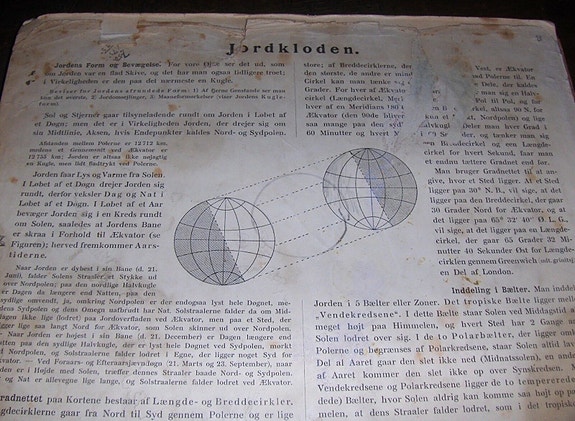 Jordkloden.
Jordens Form og Bevægelse. For vore Øjne ser det ud, som
om Jorden var en flad Skive, og det har man ogsaa tidligere troet;
i Virkeligheden er den paa det nærmeste en Kugle.
Beviser for Jordens afrundede Form: 1) Af fjerne Genstande ser man
den øverste, 2) Jordomsejlinger, 3)
form)
Sol og Stjerner gaar tilsyneladende rundt om Jorden i Løbet af
et Døgn; men det er i Virkeligheden Jorden, der drejer sig om
sin Midtlinie, Aksen, hvis Endepunkter kaldes Nord- og Sydpolen.
Afstanden mellem Polerne er 12712 km,
medens et Gennemsnit ved Ækvator er
12755 km; Jorden er altsaa ikke nøjagtig
en Kugle, men lidt fladtrykt ved Polerne.
Jorden faar Lys og Varme fra Solen.
I Løbet af et Døgn drejer Jorden sig
rundt, derfor veksler Dag og Nat i
Løbet af et Døgn. I Løbet af et Aar
bevæger Jorden sig i en Kreds rundt
om Solen, saaledes at Jordens Bane
er skraa i Forhold til Ækvator (se
Figuren); herved fremkommer Aars-
tiderne.
Naar Jorden er dybest i sin Bane (d. 21.
Juni), falder Solens Straaler et Stykke ud
over Nordpolen; paa den nordlige Halvkugle
er Dagen da længere end Natten, paa den
sydlige omvendt, ja, omkring Nordpolen er der endogsaa lyst hele Døgnet, me-
dens Sydpolen og dens Omegn udelukkende har Nat. Solstraalerne falder da om Mid-
dagen ikke lige (lodret) paa Jordoverfladen ved Ækvator, men paa et Sted, der
ligger lige saa langt Nord for Ækvator, som Solen skinner ud over Nordpolen.
Naar Jorden er højest i sin Bane (d. 21. December) er Dagen længere end
Natten paa den sydlige Halvkugle, der er lyst hele Døgnet ved Sydpolen, mørkt
ved Nordpolen, og Solstraalerne falder lodret i Egne, der ligger noget Syd for
Ækvator. — Ved Foraars- og Efteraarsjævndøgn (21. Marts og 23. September), naar
Jorden er i Højde med Solen, træffer dennes Straaler baade Nord- og Sydpolen,
Dag og Nat er allevegne lige lange, og Solstraalerne falder lodret ved Ækvator.
Gradnettet paa Kortene bestaar af Længde- og Breddecirkler.
Længdecirklerne gaar fra Nord til Syd gennem Polerne og er lige
store; af Breddecirklerne,
den største, de andre er mindre
Cirkel kan man tænke
Grader. For hver af
cirkel (Længdecirkel,
hver af en Meridians
Ækvator (den 90de bliver
saa mange Grader, og den
60 Minutter og hvert
Vest, er Ækvator
ud Polerne til. En
Dele, der kaldes
man sig en halv
Pol til Pol, og for
cirkel, altsaa 90 N. for
deler man hver Grad i
Breddecirkel og en Længde-
cirkel for hvert Sekund, faar man
et endnu tættere Gradnet end før.
Man bruger Gradnettet til at an-
give, hvor et Sted ligger. At et Sted
ligger paa 30° N. B., vil sige, at det
ligger paa den Breddecirkel, der gaar
30 Grader Nord for Ækvator, og at
det ligger paa 65° 32' 40" Ø. L. G.,
vil sige, at det ligger paa en Længde-
cirkel, der gaar 65 Grader 32 Mi-
nutter 40 Sekunder Øst for Længde-
cirklen gennem Greenwich
en Del af London.
Inddeling i Bælter. Man inddeler
Jorden i 5 Bælter eller Zoner. Det tropiske Bælte ligger mellem
„Vendekredsene“. I dette Bælte staar Solen ved Middagstid al
meget højt paa Himmelen, og hvert Sted har 2 Gange aa
Solen lodret over sig. I de to Polarbælter, der ligger om
Polerne og begrænses af Polarkredsene, staar Solen altid lavt
Del af Aaret gaar den slet ikke ned (Midnatssolen), en anden
af Aaret kommer den slet ikke op over Synskredsen.
Vendekredsene og Polarkredsene ligger de to tempererede
dede) Bælter, hvor Solen aldrig kan komme saa højt op pa
melen, at dens Straaler falder lodret, som i det tropisk